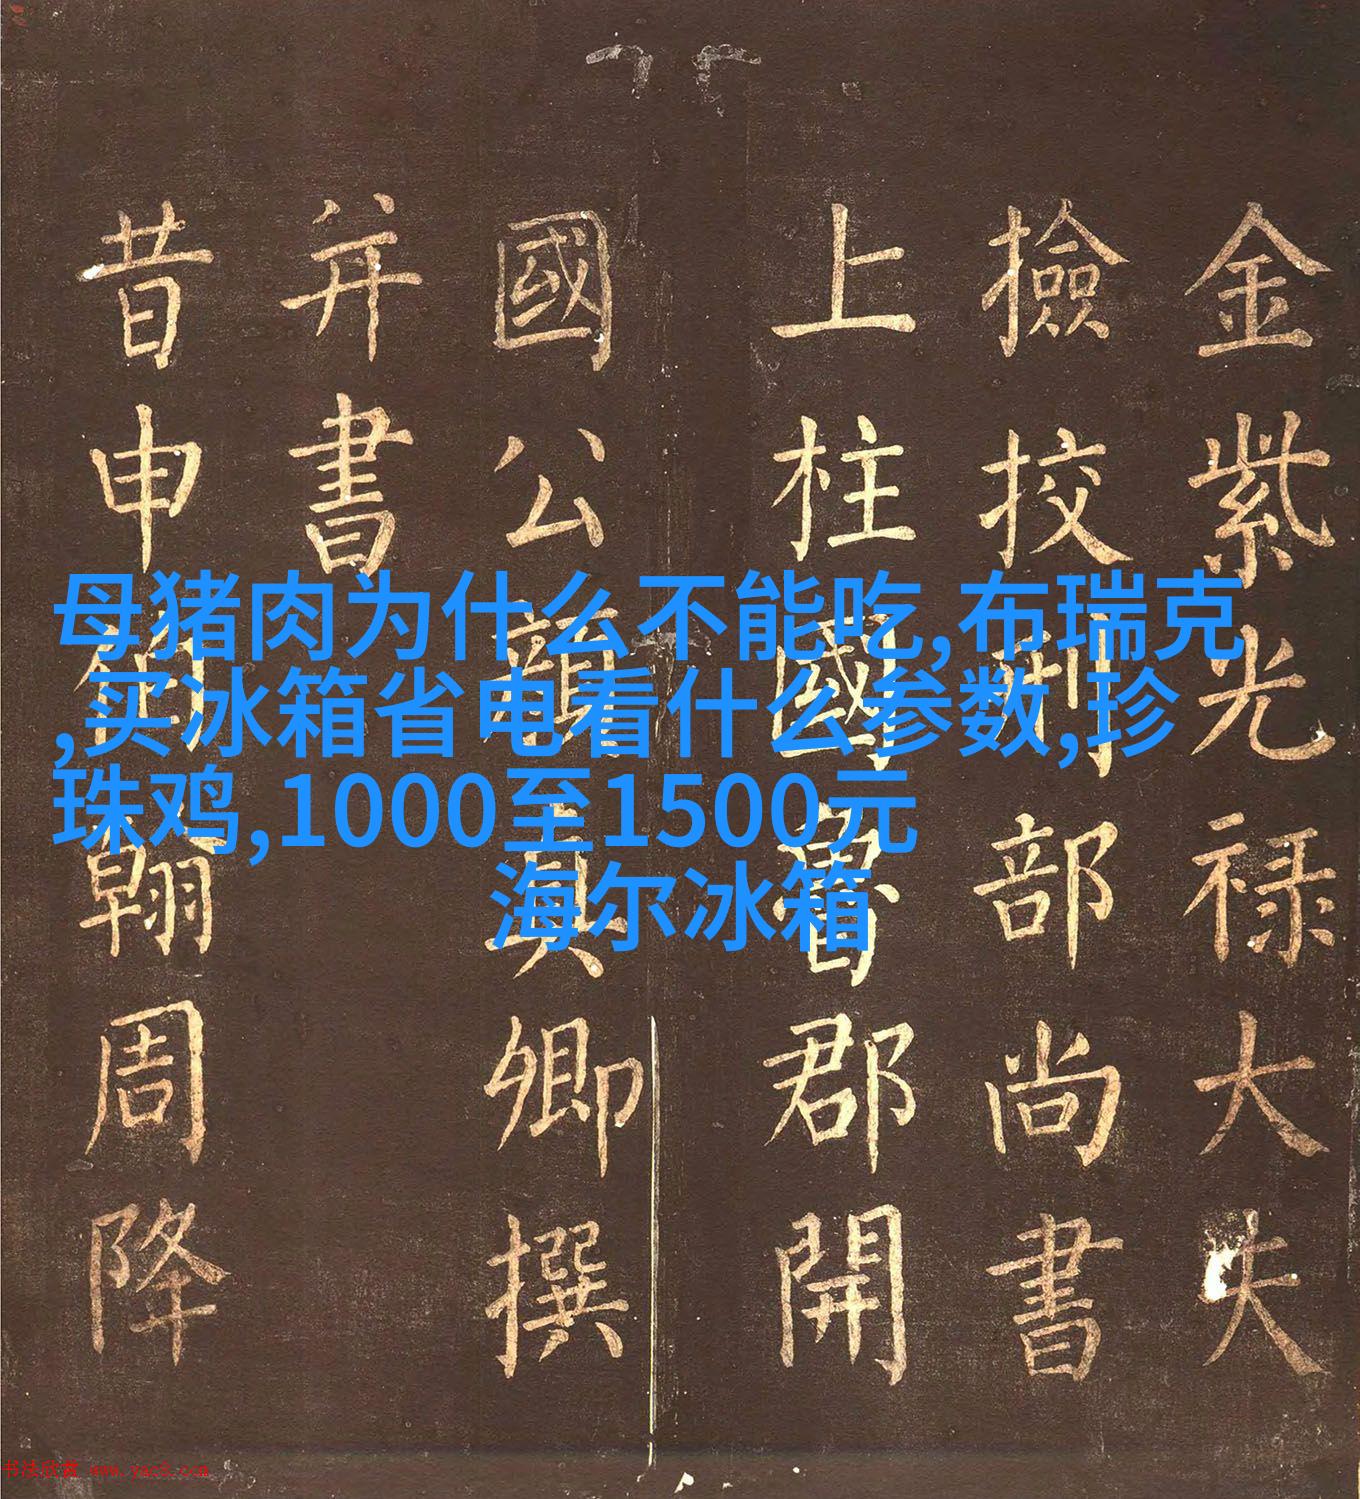 金紫光禄大夫
撿挍刑部尚書
上柱國魯郡開
國公顏真卿撰
并書
昔申伯翰周降
母猪肉为什么不能吃,布瑞克
,买冰箱省电看什么参数,珍
珠鸡,1000至1500元
海尔冰箱
书法欣赏 www.yac8.com